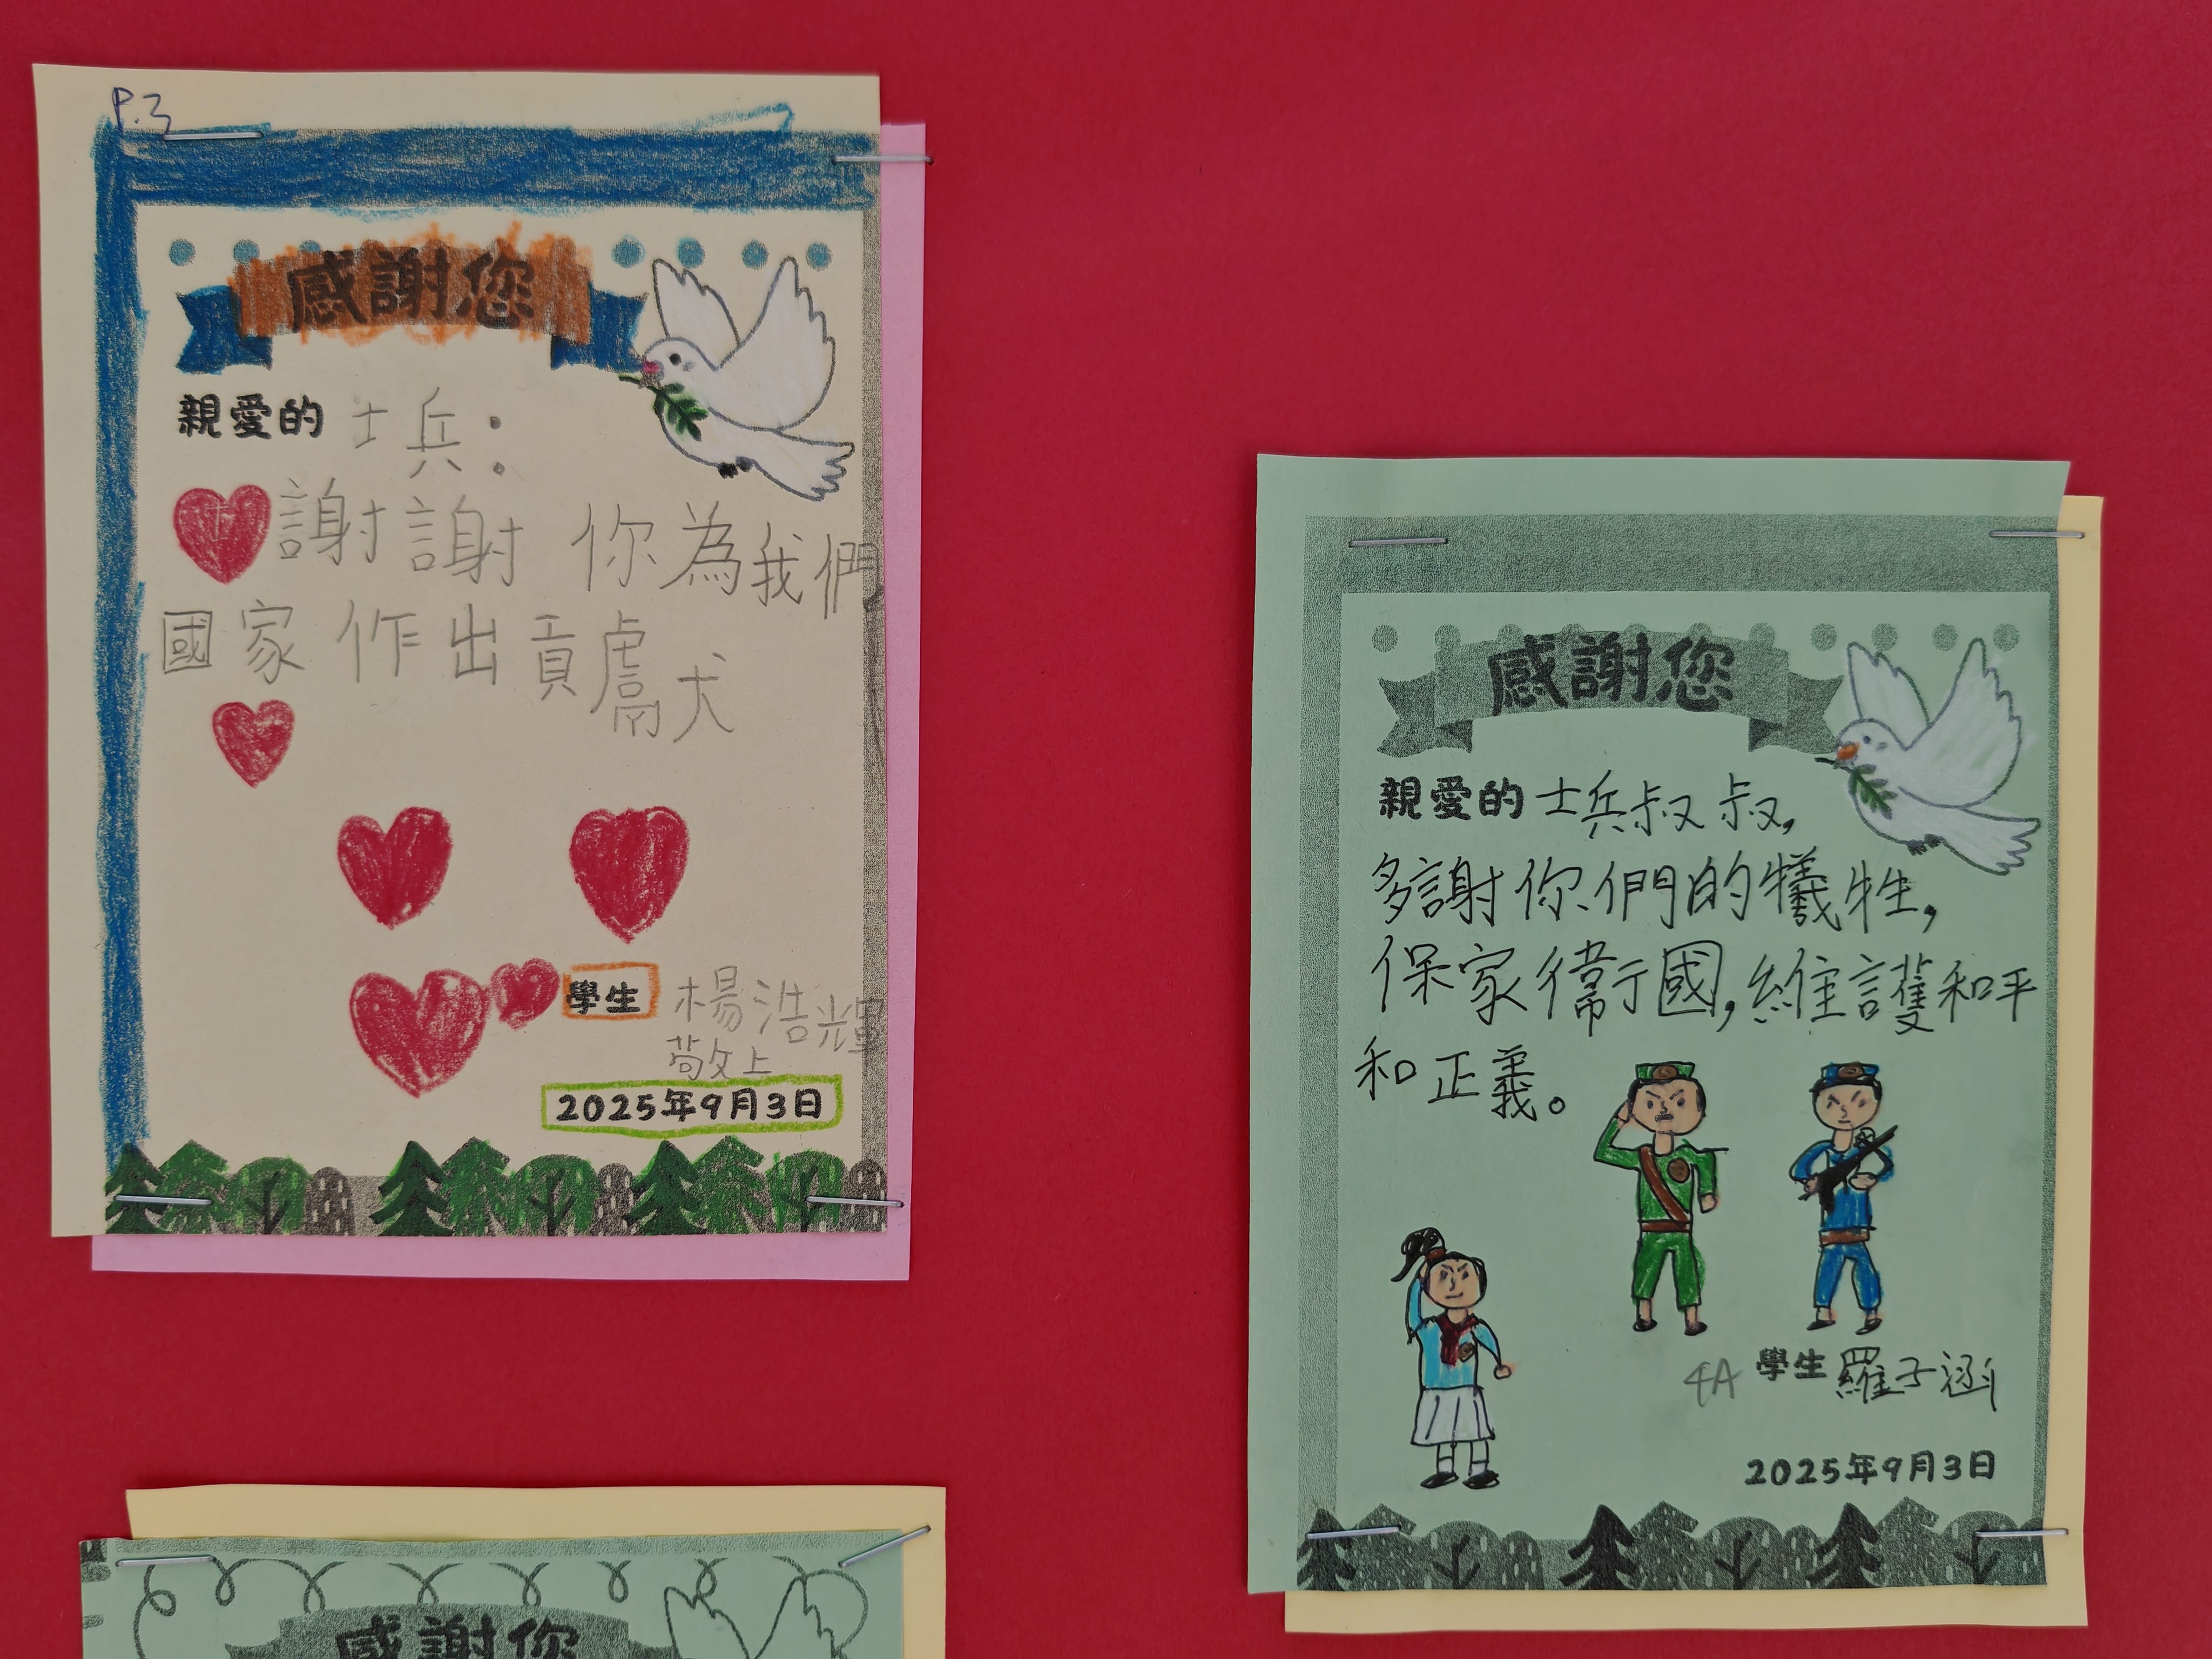 P.3
感謝您
親愛的 士兵：
謝謝 你為我們
國家作出貢獻
學生 楊浩輝
敬上
2025年9月3日
感謝您
親愛的 士兵叔叔,
多謝你們的犧牲,
保家衛國,維護和平
和正義。
4A 學生 羅子涵
2025年9月3日
感謝您